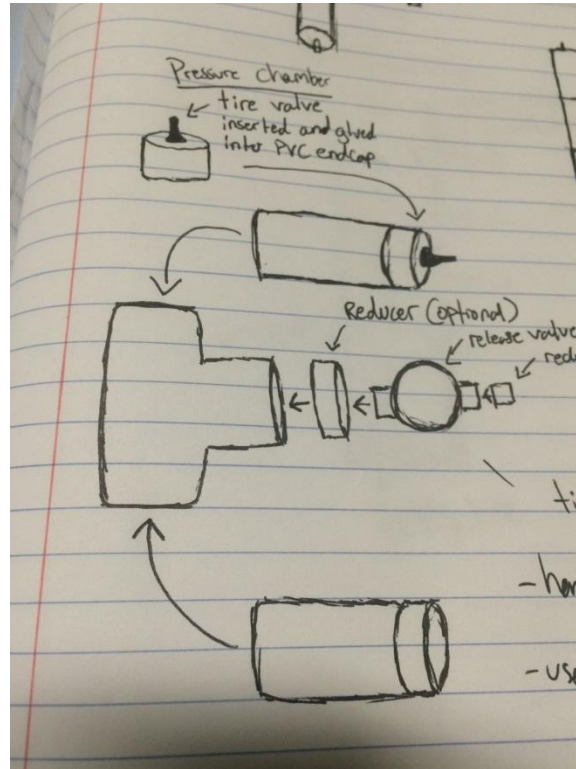 Pressure chamber
tire valve
inserted and glued
into PVC endcap
Reducer (optional)
release valve